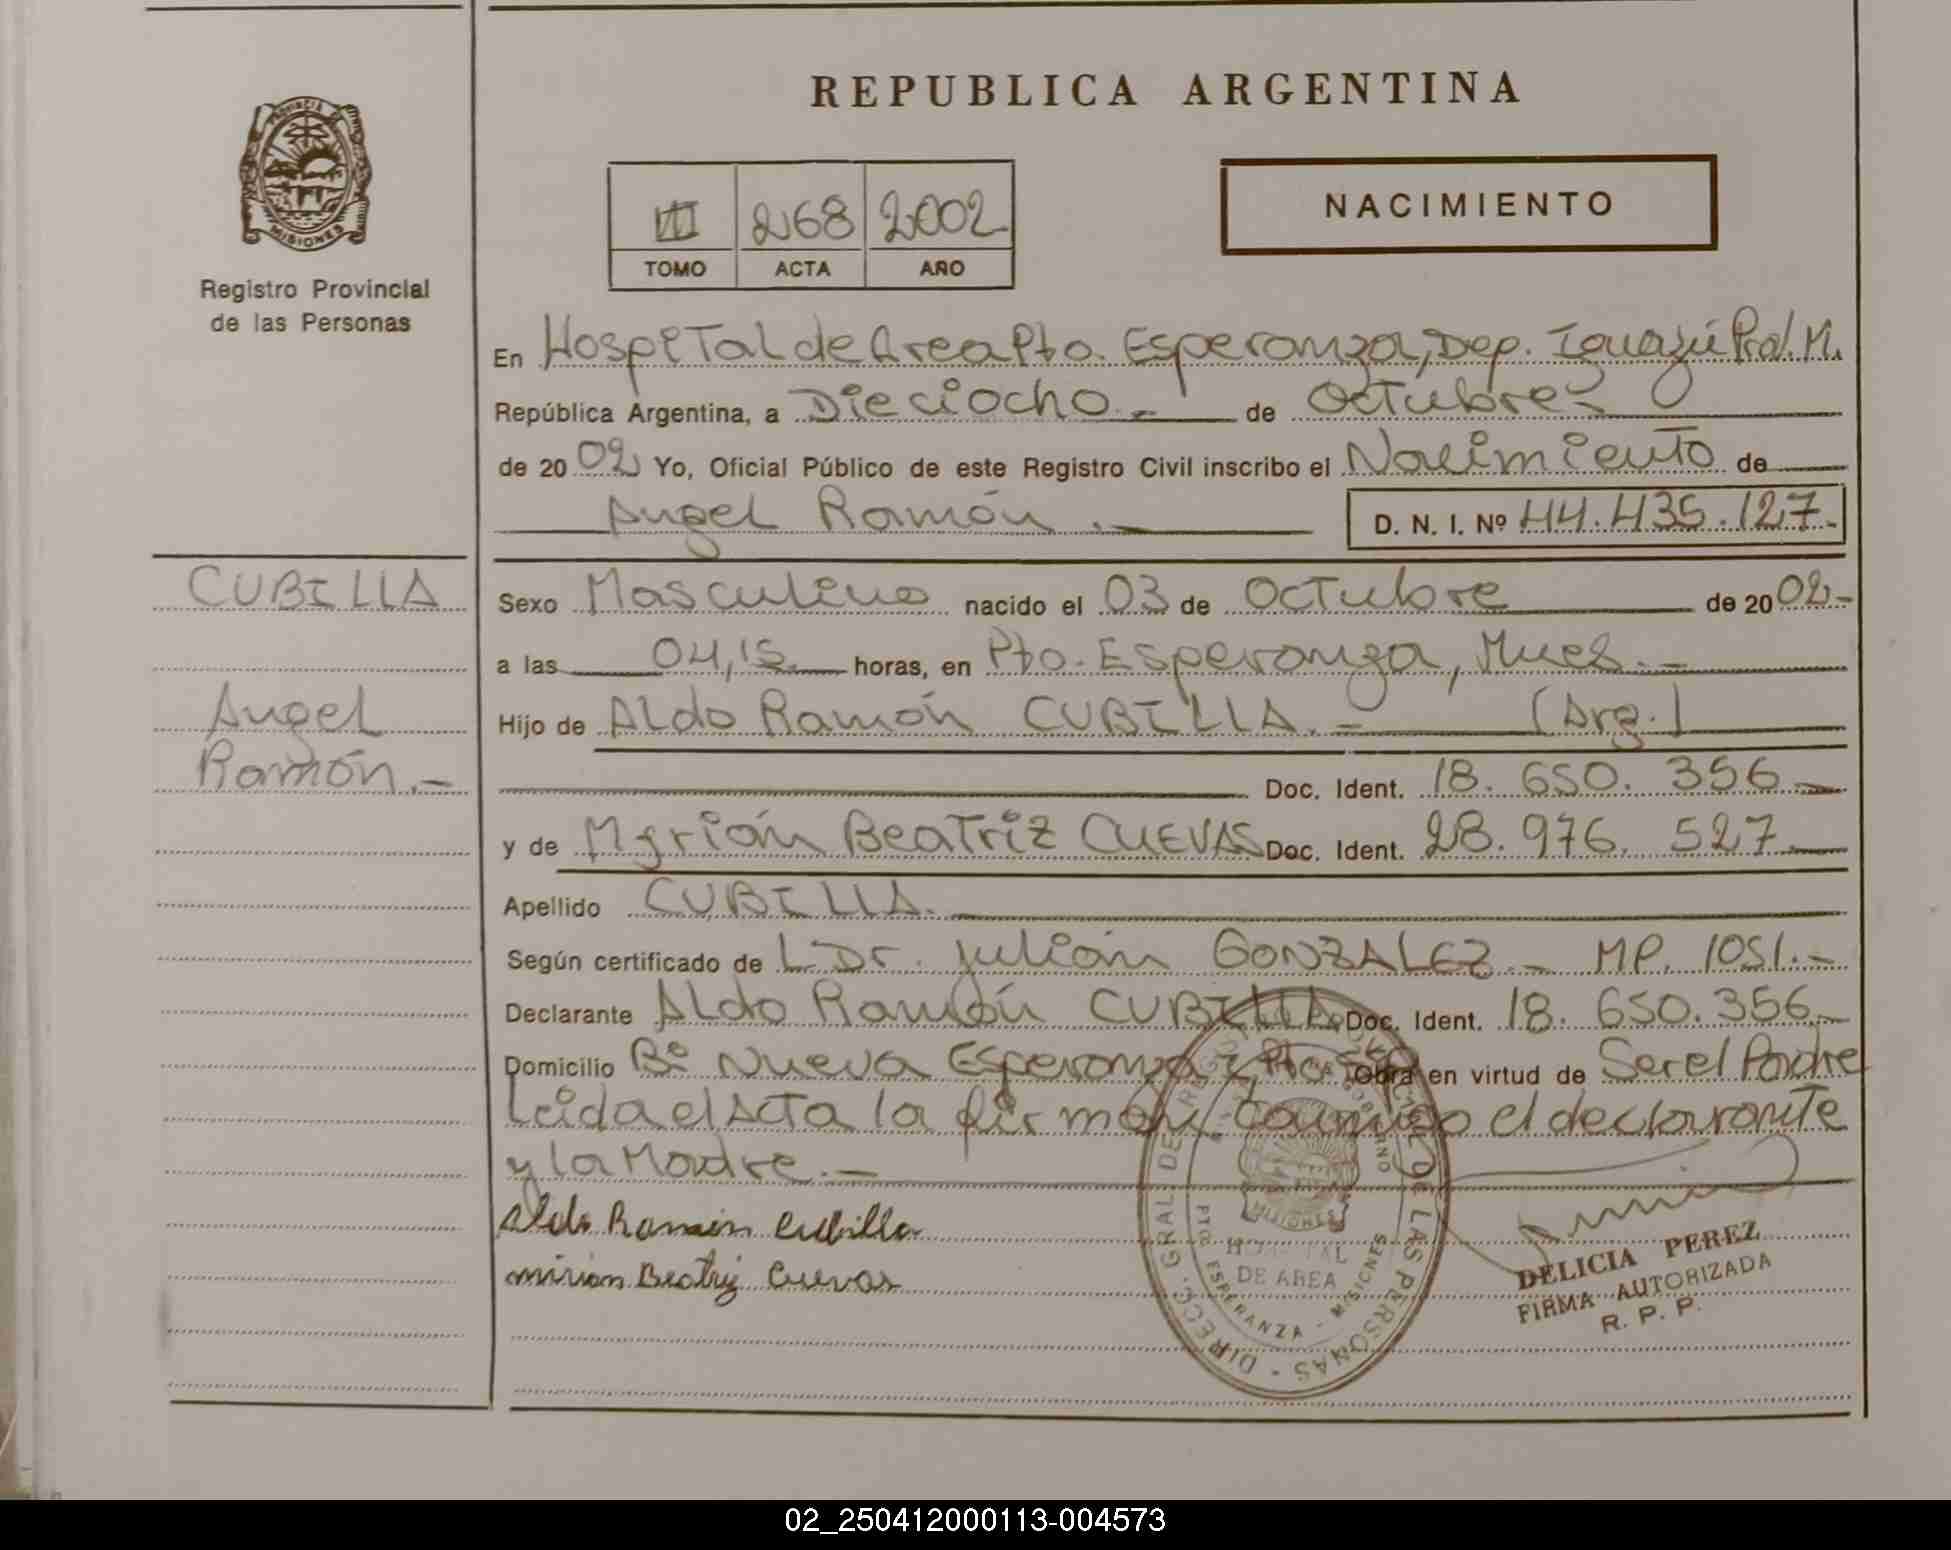 REPUBLICA ARGENTINA
PROVINCIA
MISIONES
Registro Provincial
de las Personas
III 268 2002
TOMO ACTA AÑO
NACIMIENTO
En Hospital de Area Pto. Esperanza, Dep. Iguazú M.
República Argentina, a Dieciocho.- de Octubre-
de 2002 Yo, Oficial Público de este Registro Civil inscribo el Nacimiento de
Angel Ramón .- D. N. I. Nº 44.435.127.-
CUBILLA
Angel
Ramón.-
Sexo Masculino nacido el 03 de Octubre de 2002-
a las 04,15 horas, en Pto. Esperanza, Mnes.-
Hijo de Aldo Ramón CUBILLA.- (Arg.)
Doc. Ident. 18.650.356-
y de Myrian Beatriz CUEVAS Doc. Ident. 28.976.527-
Apellido CUBILLA.
Según certificado de Dr. Julián GONZALEZ.- MP. 1051.-
Declarante Aldo Ramón CUBILLA Doc. Ident. 18.650.356-
Domicilio Bº Nueva Esperanza, Pto. Obra en virtud de Ser el Padre
Leida el Acta la firman conmigo el declarante
y la Madre.-
Aldo Ramón Cubilla
mirian Beatriz Cuevas
DIRECC. GRAL DE REGISTRO PROVINCIAL DE LAS PERSONAS
MISIONES
HOSPITAL
DE AREA
PTO ESPERANZA - MISIONES
DELICIA PEREZ
FIRMA AUTORIZADA
R. P. P.
02_250412000113-004573